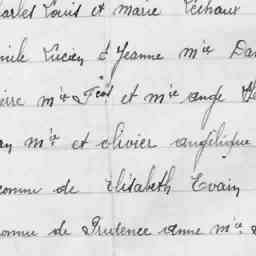 harles Louis et marie Léchaux
mile Lucien & Jeanne mie Da
erre mie Fcois et mie ange
an mie et olivier angélique
comme de Elisabeth Evain
comme de Prudence anne mie